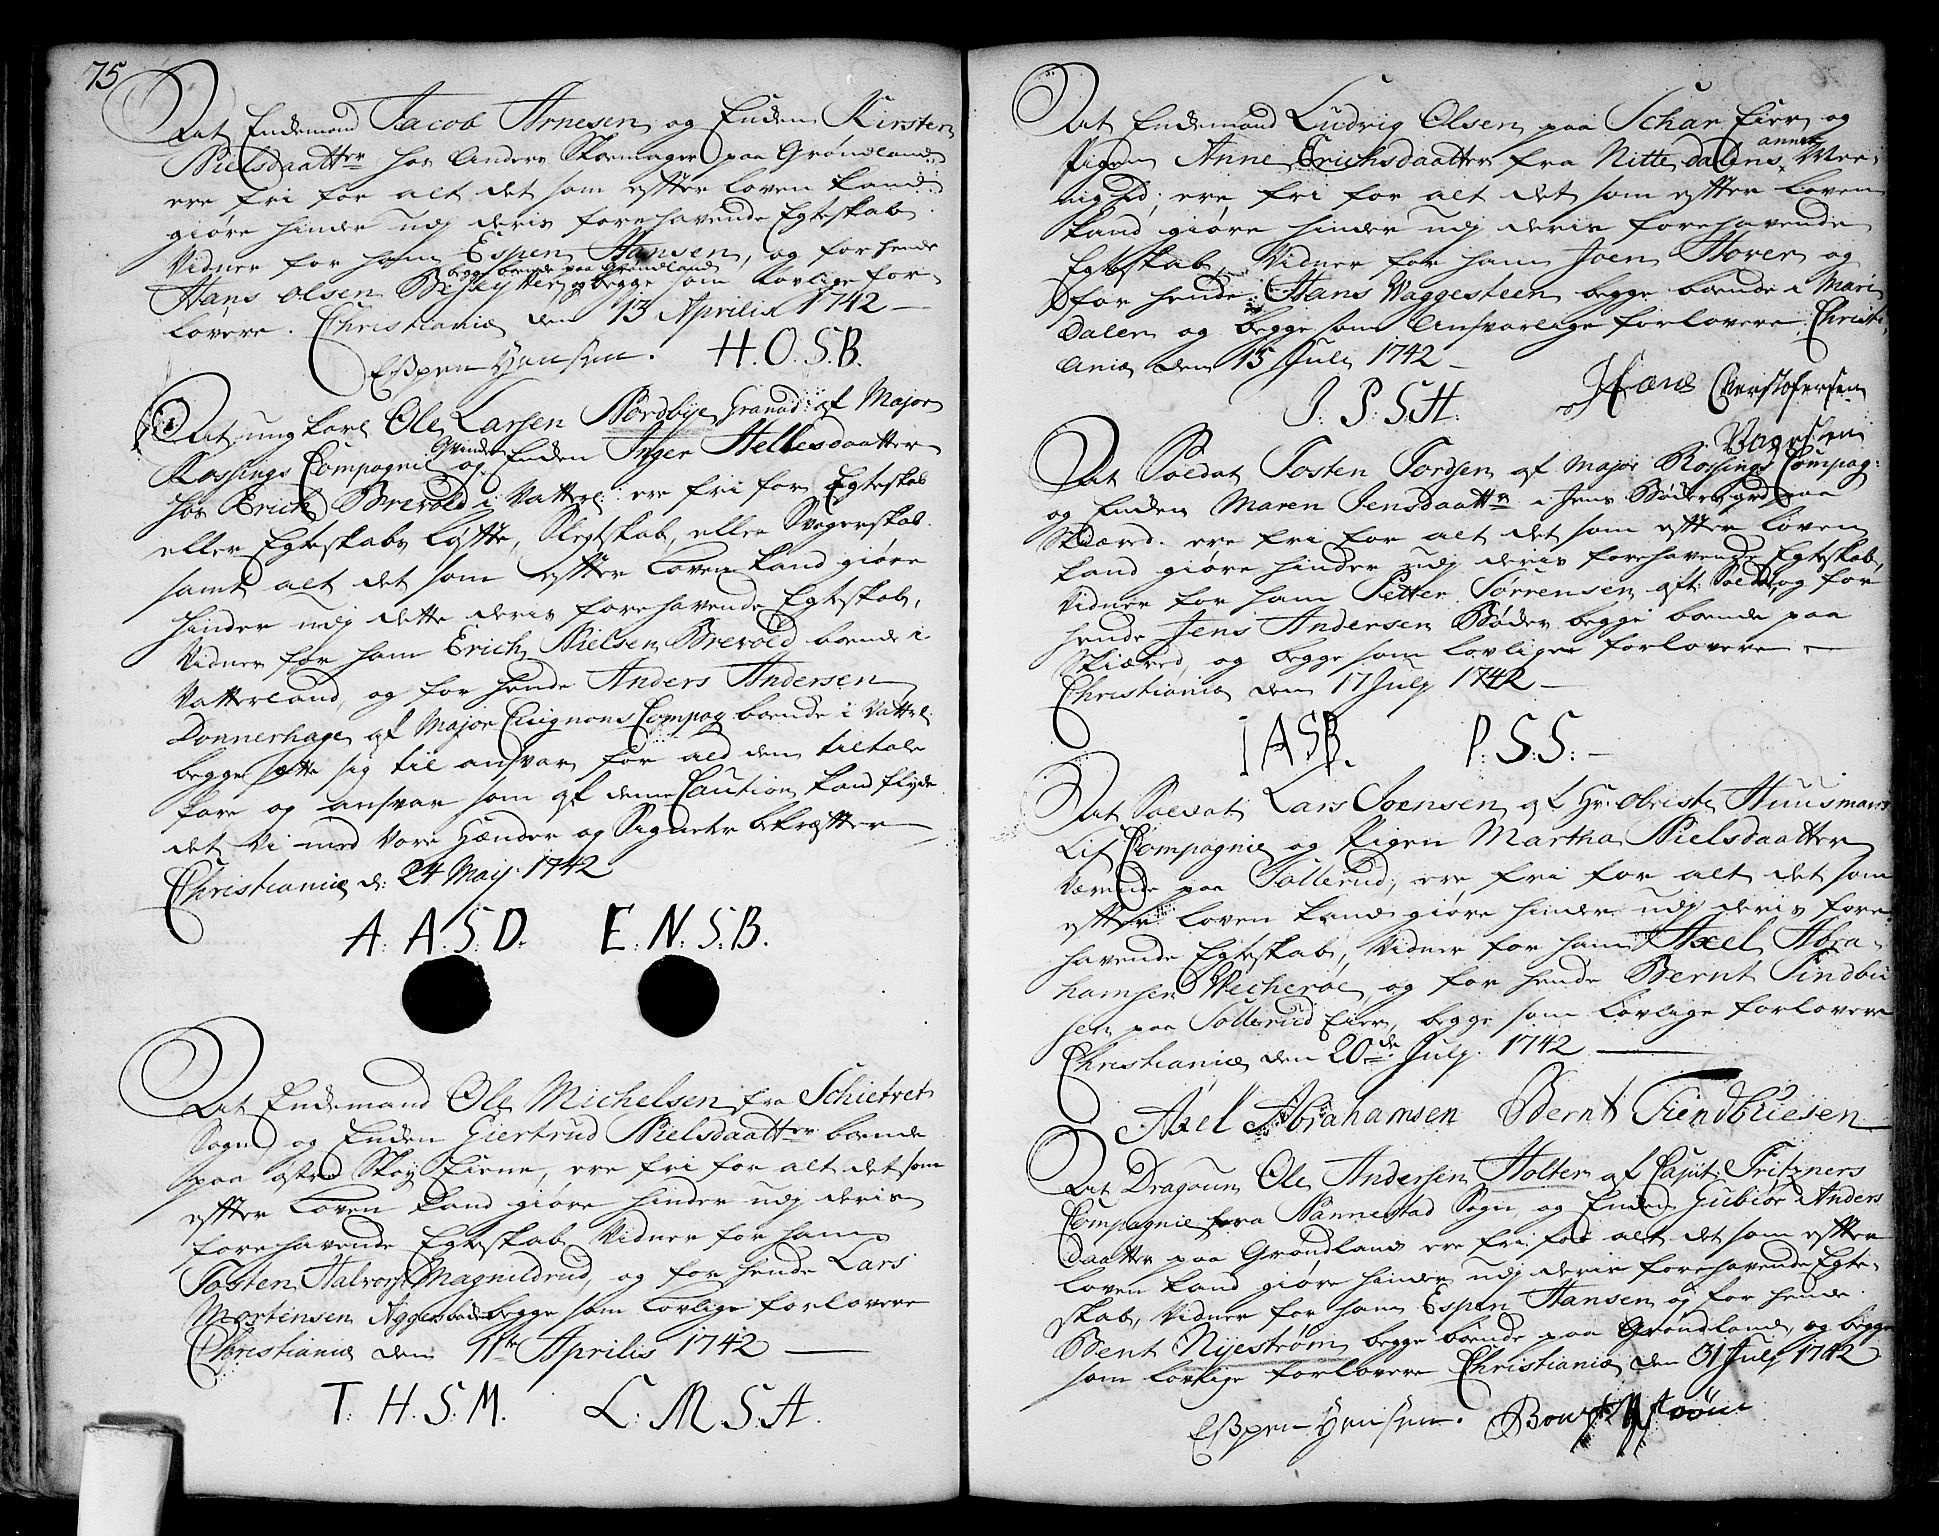 75
At Enckemand Jacob Arnesen og Encken Kirsten
Nielsdaatter hos Anders Skoemager paa Grønland
ere fri for alt det som effter Loven kand
giøre hinder udj deris forehavende Egteskab.
Vidner for ham Espen Hansen, og for hende
begge boende paa Grønland
Hans Olsen Bisløtter og begge som lovlige for-
lovere. Christiania den 13 Aprilis 1742
Espen Hansen. H.O.S.B.
At ung karl Ole Larsen Nordbye Granad: af Major
Rossings Compagnie og Encken Inger Hellesdaatter
hos Erich Brevold i Vatterl: ere fri for Egteskab
eller Egteskabs Løffte, Slegtskab, eller Svogerskab
samt alt det som effter Loven kand giøre
hinder udj dette deris forehavende Egteskab,
Vidner for ham Erich Nielsen Brevold boende i
Vatterland, og for hende Anders Andersen
Donnerhage af Major Compag boende i Vatterl:
begge sætte sig til ansvar for ald den tiltale
fare og ansvar som af denne Caution kand flyde
det Vi med Vore Hænder og Signeter bekræfter
Christiania d: 24 May: 1742
A: A: S: D. E: N: S: B.
At Enckemand Ole Michelsen fra Schietvet
Sogn, og Encken Giertrud Nielsdaatter boende
paa østre Skøy Eiene, ere fri for alt det som
effter Loven kand giøre hinder udj deris
forehavende Egteskab Vidner for ham
Tosten Halvors: Magnildrud, og for hende Lars
Mortensen Aggersboe begge som lovlige forlovere
Christiania den 11te Aprilis 1742
T: H: S: M. L: M: S: A.
At Enckemand Ludvig Olsen paa Schar Eier og
Pigen Anne Erichsdaatter fra Nittedalens annex Mee-
nighed, ere fri for alt det som effter Loven
kand giøre hinder udj deris forehavende
Egteskab, Vidner for ham Joen Hover og
for hende: Hans Vaggesteen begge boende i Mari-
dalen og begge som Ansvarlige forlovere Christi-
ania den 15 July 1742
J: P: S: H. Hans Christofersen
At Soldat Tosten Tordsen af Major Rossings Compag:
og Encken Maren Jensdaatter i Jens Bødkers grd paa
Skiæred. ere fri for alt det som effter Loven
kand giøre hinder udj deris forehavende Egteskab,
Vidner for ham Petter Sørrensen aft: Soldat, og for
hende Jens Andersen Bødker begge boende paa
Skiæred, og begge som lovlige forlovere
Christiania den 17 July 1742
I A S B. P: S: S:
At Soldat Lars Joensen af Hr: Obriste Huusmans
Lif Compagnie og Pigen Martha Nielsdaatter
værende paa Sollerud, ere fri for alt det som
effter Loven kand giøre hinder udj deris fore-
havende Egteskab, Vidner for ham Axel Abra-
hamsen Wecherøe, og for hende Bernt Tindbu
sen paa Sollerud Eier, begge som lovlige forlovere
Christiania den 20de July 1742
Axel Abrahamsen Bernt Tiendbuesen
At Dragoun Ole Andersen Holter af Capit: Fritzners
Compagnie fra Nannestad Sogn, og Encken Gubiør Anders
daatter paa Grønland ere fri for alt det som effter
Loven kand giøre hinder udj deris forehavende Egte-
skab, Vidner for ham Espen Hansen og for hende
Bent Nyestrøm begge boende paa Grønland, og begge
som lovlige forlovere Christiania den 31 July 1742
Espen Hansen.